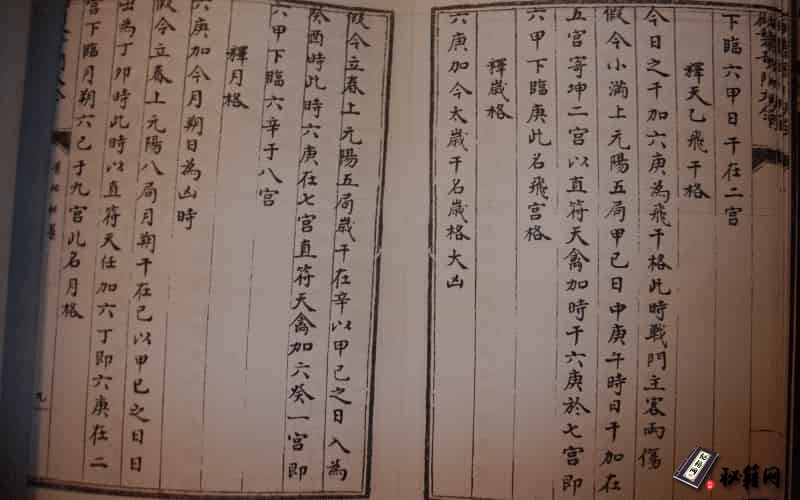 下臨六甲日干在二宮
釋天乙飛干格
今日之干加六庚為飛干格此時戰鬥主客兩傷
假令小滿上元陽五局甲己日中庚午時日干加在
五宮寄坤二宮以直符天禽加時干六庚於七宮即
六甲下臨庚此名飛宮格
釋歲格
六庚加今太歲干名歲格大凶
假令立春上元陽五局歲干在辛以甲己之日入為
癸酉時此時六庚在七宮直符天禽加六癸一宮即
六甲下臨六辛于八宮
釋月格
六庚加今月朔日為凶時
假令立春上元陽八局月朔干在己以甲己之日日
出為丁卯時此時以直符天任加六丁即六庚在二
宮下臨月朔六己于九宮此名月格
九
秘籍网